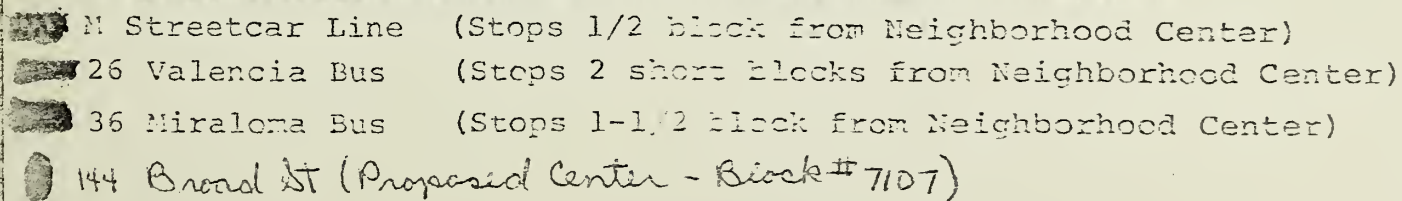 M Streetcar Line (Stops 1/2 block from Neighborhood Center)
26 Valencia Bus (Stops 2 short blocks from Neighborhood Center)
36 Miraloma Bus (Stops 1-1/2 block from Neighborhood Center)
144 Broad St (Proposed Center - Block # 7107)